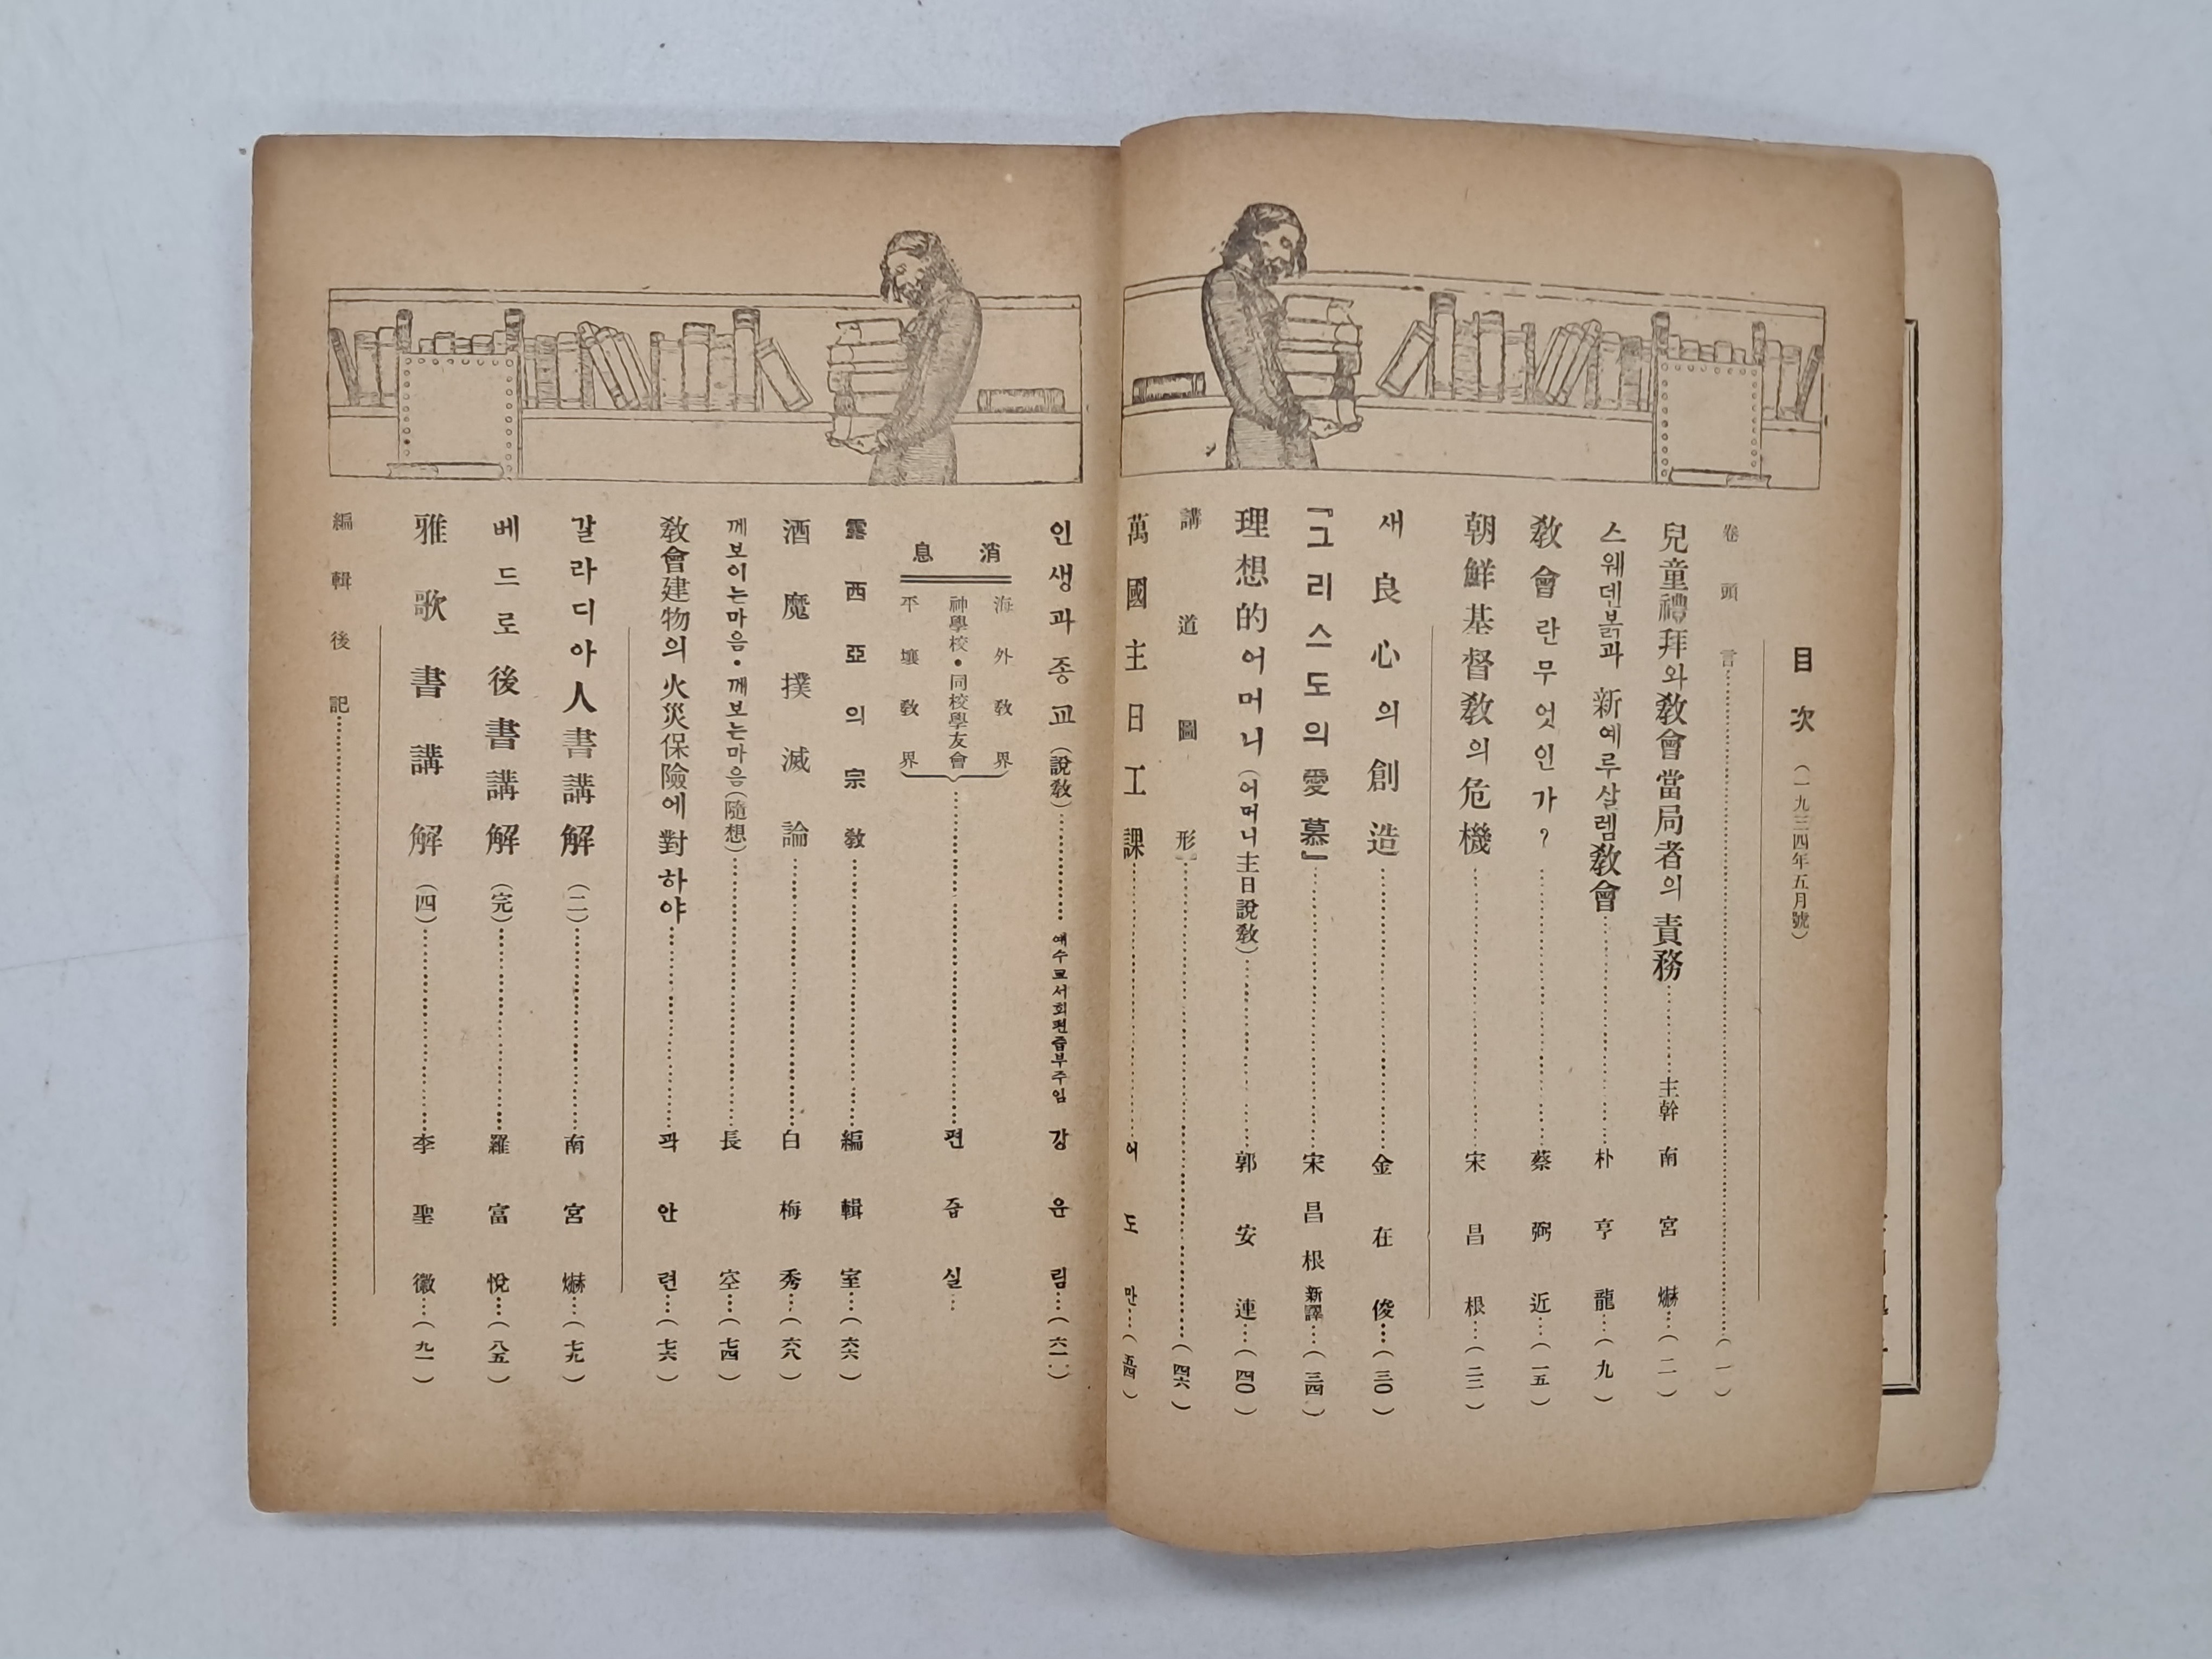 目次 (一九三四年五月號)
卷頭言 (一)
兒童禮拜와敎會當局者의責務 主幹 南宮爀 (二)
스웨덴볽과 新예루살렘敎會 朴亨龍 (九)
敎會란무엇인가? 蔡弼近 (一五)
朝鮮基督敎의危機 宋昌根 (二二)
새良心의創造 金在俊 (三〇)
『그리스도의愛慕』 宋昌根 新譯 (三四)
理想的어머니(어머니主日說敎) 郭安連 (四〇)
講道圖形 (四六)
萬國主日工課 어도만 (五四)
인생과종교 (說敎) 예수교서회편즙부주임 강운림 (六一)
消息
海外敎界
神學校・同校學友會
平壤敎界
편즙실
露西亞의宗敎 編輯室 (六六)
酒魔撲滅論 白梅秀 (六八)
께보이는마음・깨보는마음(隨想) 長空 (七四)
敎會建物의火災保險에對하야 곽안련 (七六)
갈라디아人書講解 (二) 南宮爀 (七九)
베드로後書講解 (完) 羅富悅 (八五)
雅歌書講解 (四) 李聖徽 (九一)
編輯後記